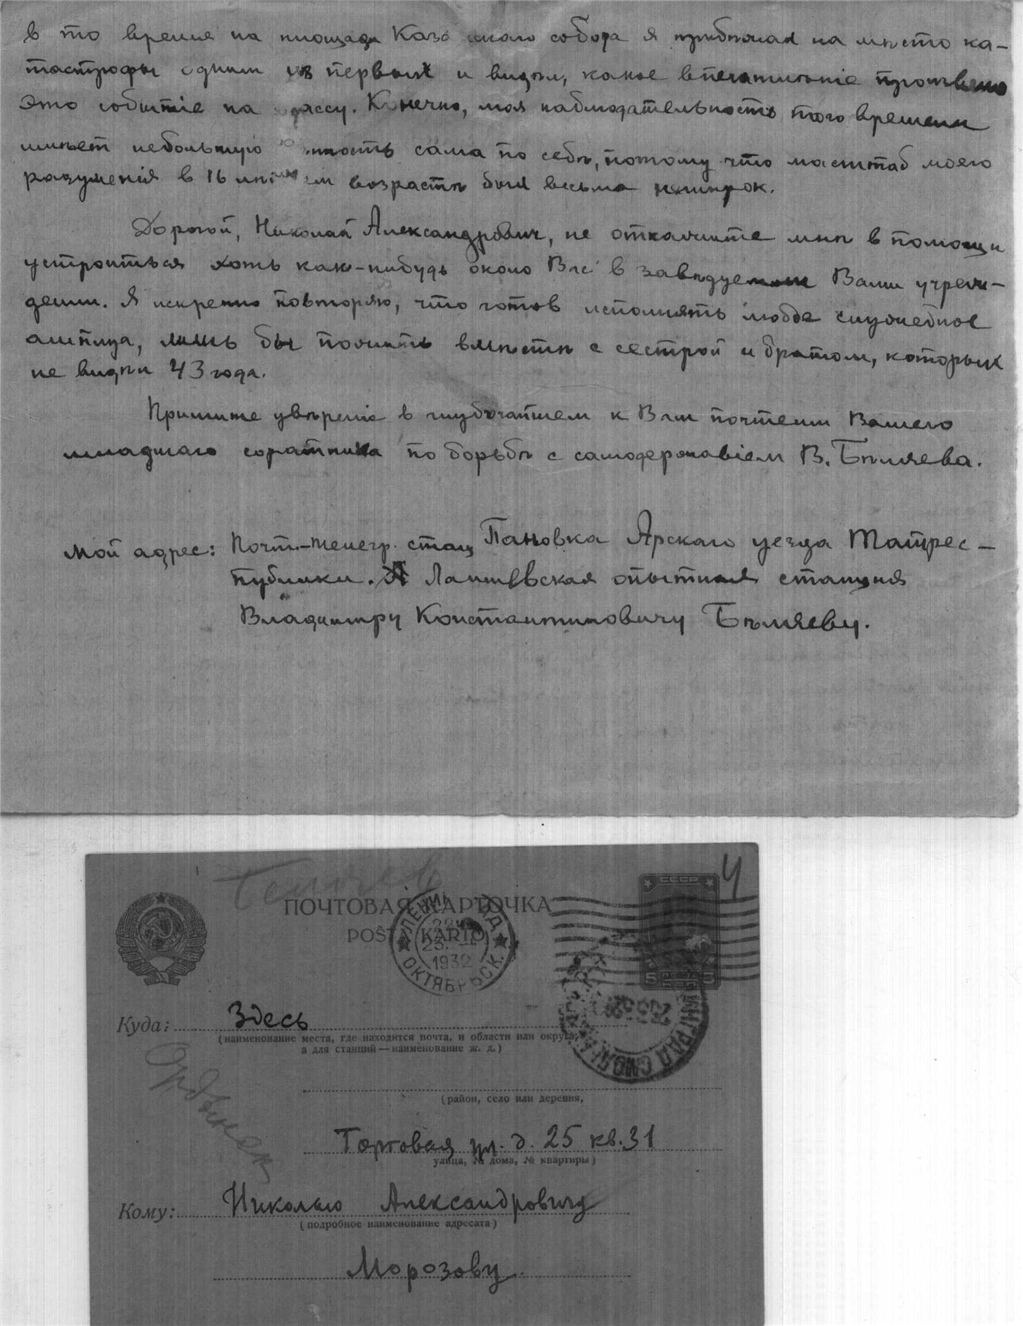 в то время на площади Казанского собора я прибежал на мѣсто ка-
тастрофы одним из первых и видѣл, какое впечатлѣніе произвело
это событіе на массу. Конечно, моя наблюдательность того времени
имѣет небольшую цѣнность сама по себѣ, потому что масштаб моего
разумѣнія в 16 лѣтнем возрастѣ был весьма неширок.
Дорогой, Николай Александрович, не откажите мнѣ в помощи
устроиться хоть как-нибудь около Вас в завѣдуемом Вами учреж-
дении. Я искренно повторяю, что готов исполнять любое служебное
амплуа, лишь бы пожить вмѣстѣ с сестрой и братом, которых
не видѣл 43 года.
Примите увѣреніе в глубочайшем к Вам почтении Вашего
младшаго соратника по борьбѣ с самодержавіем В. Бѣляева.
Мой адрес: Почт.-телегр. стац Пановка Арскаго уезда Татрес-
публики. Лаишевская опытная станция
Владимиру Константиновичу Бѣляеву.
Беляев
4
СССР
ПОЧТОВАЯ КАРТОЧКА
POŜTA KARTO
ЛЕНИНГРАД
1932
ОКТЯБРЬСК.
5
Куда: Здесь
(наименование места, где находится почта, и области или округа,
а для станций — наименование ж. д.)
(район, село или деревня,
Торговая ул. д. 25 кв. 31
улица, № дома, № квартиры)
Кому: Николаю Александровичу
(подробное наименование адресата)
Морозову